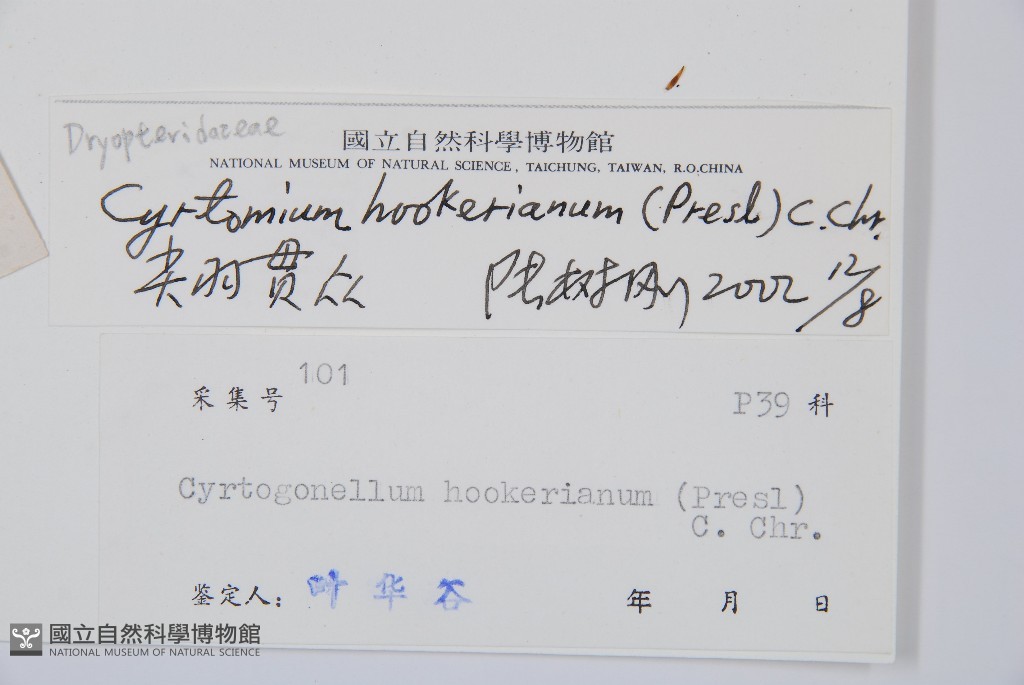 Dryopteridaceae
國立自然科學博物館
NATIONAL MUSEUM OF NATURAL SCIENCE, TAICHUNG, TAIWAN, R.O.CHINA
Cyrtomium hookerianum (Presl) C. Chr.
尖羽贯众 陆树刚 2002 12/8
采集号 101
P39 科
Cyrtogonellum hookerianum (Presl)
C. Chr.
鉴定人: 叶华谷 年 月 日
國立自然科學博物館
NATIONAL MUSEUM OF NATURAL SCIENCE